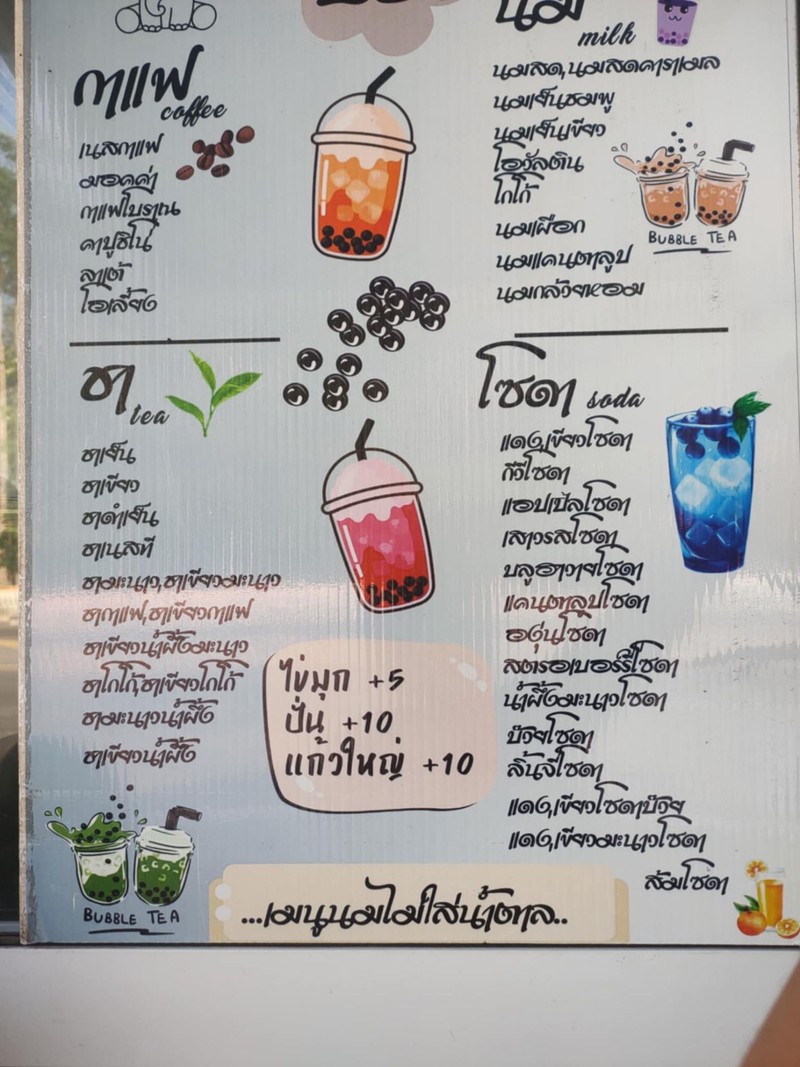 กาแฟ
coffee
เนสกาแฟ
มอคค่า
กาแฟโบราณ
คาปูชิโน่
ลาเต้
โอเลี้ยง
นม
milk
นมสด,นมสดคาราเมล
นมเย็นชมพู
นมเย็นเขียว
โอวัลติน
โกโก้
นมเผือก
นมแคนตาลูป
นมกล้วยหอม
BUBBLE TEA
ชา
tea
ชาเย็น
ชาเขียว
ชาดำเย็น
ชาเนสที
ชามะนาว,ชาเขียวมะนาว
ชากาแฟ,ชาเขียวกาแฟ
ชาเขียวน้ำผึ้งมะนาว
ชาโกโก้,ชาเขียวโกโก้
ชามะนาวน้ำผึ้ง
ชาเขียวน้ำผึ้ง
BUBBLE TEA
ไข่มุก +5
ปั่น +10
แก้วใหญ่ +10
โซดา
soda
แดง,เขียวโซดา
กีวีโซดา
แอปเปิ้ลโซดา
เสาวรสโซดา
บลูฮาวายโซดา
แคนตาลูปโซดา
องุ่นโซดา
สตรอเบอร์รี่โซดา
น้ำผึ้งมะนาวโซดา
บ๊วยโซดา
ลิ้นจี่โซดา
แดง,เขียวโซดาบ๊วย
แดง,เขียวมะนาวโซดา
ส้มโซดา
...เมนูนมไม่ใส่น้ำตาล..